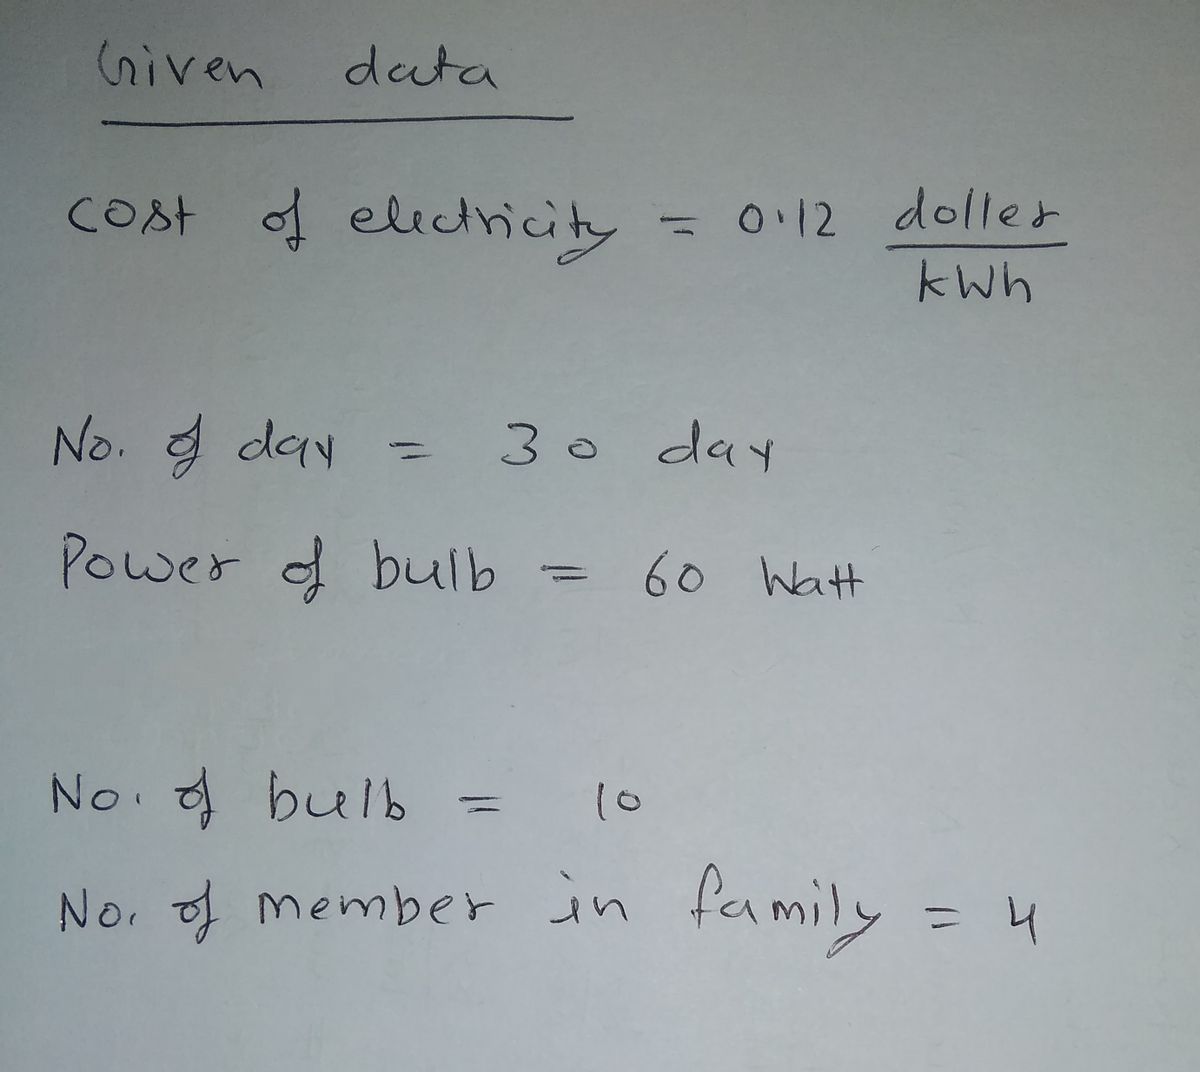 Given data
cost of electricity = 0.12 doller
kWh
No. of day = 30 day
Power of bulb = 60 Watt
No. of bulb = 10
No. of member in family = 4